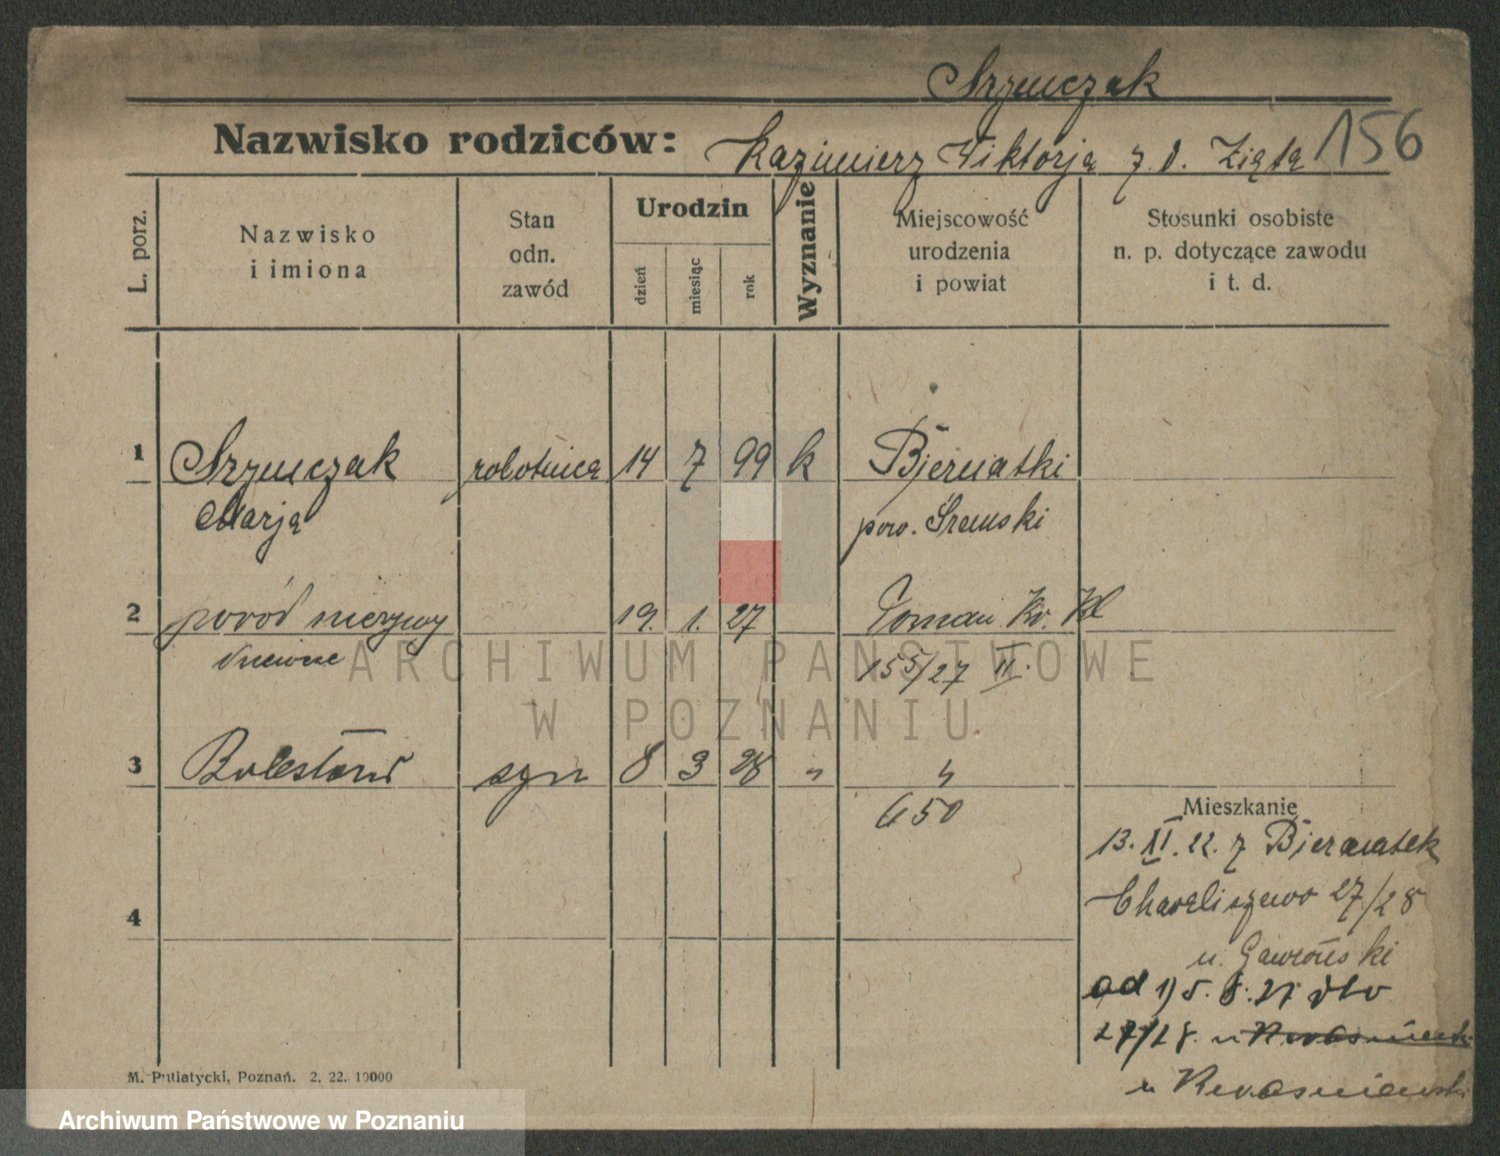 Szymczak
Nazwisko rodziców: Kazimierz Wiktorja z. d. Zięta 156
L. porz.
Nazwisko
i imiona
Stan
odn.
zawód
Urodzin
dzień
miesiąc
rok
Wyznanie
Miejscowość
urodzenia
i powiat
Stosunki osobiste
n. p. dotyczące zawodu
i t. d.
1 Szymczak robotnica 14 7 99 k Bjernatki
Marja pow. Śremski
2 poród nieżywy 19. 1. 27 Poznań
155/27 II.
3 Bolesław syn 8 3 28 " "
650
Mieszkanie
13. XI. 22. z Bjernatek
Chwaliszewo 27/28
u. Gawroński
4
od 15. 8. 27 dto
27/28. u
u Kwaśniewski
M. Putiatycki, Poznań. 2. 22. 10000
ARCHIWUM PAŃSTWOWE
W POZNANIU
Archiwum Państwowe w Poznaniu